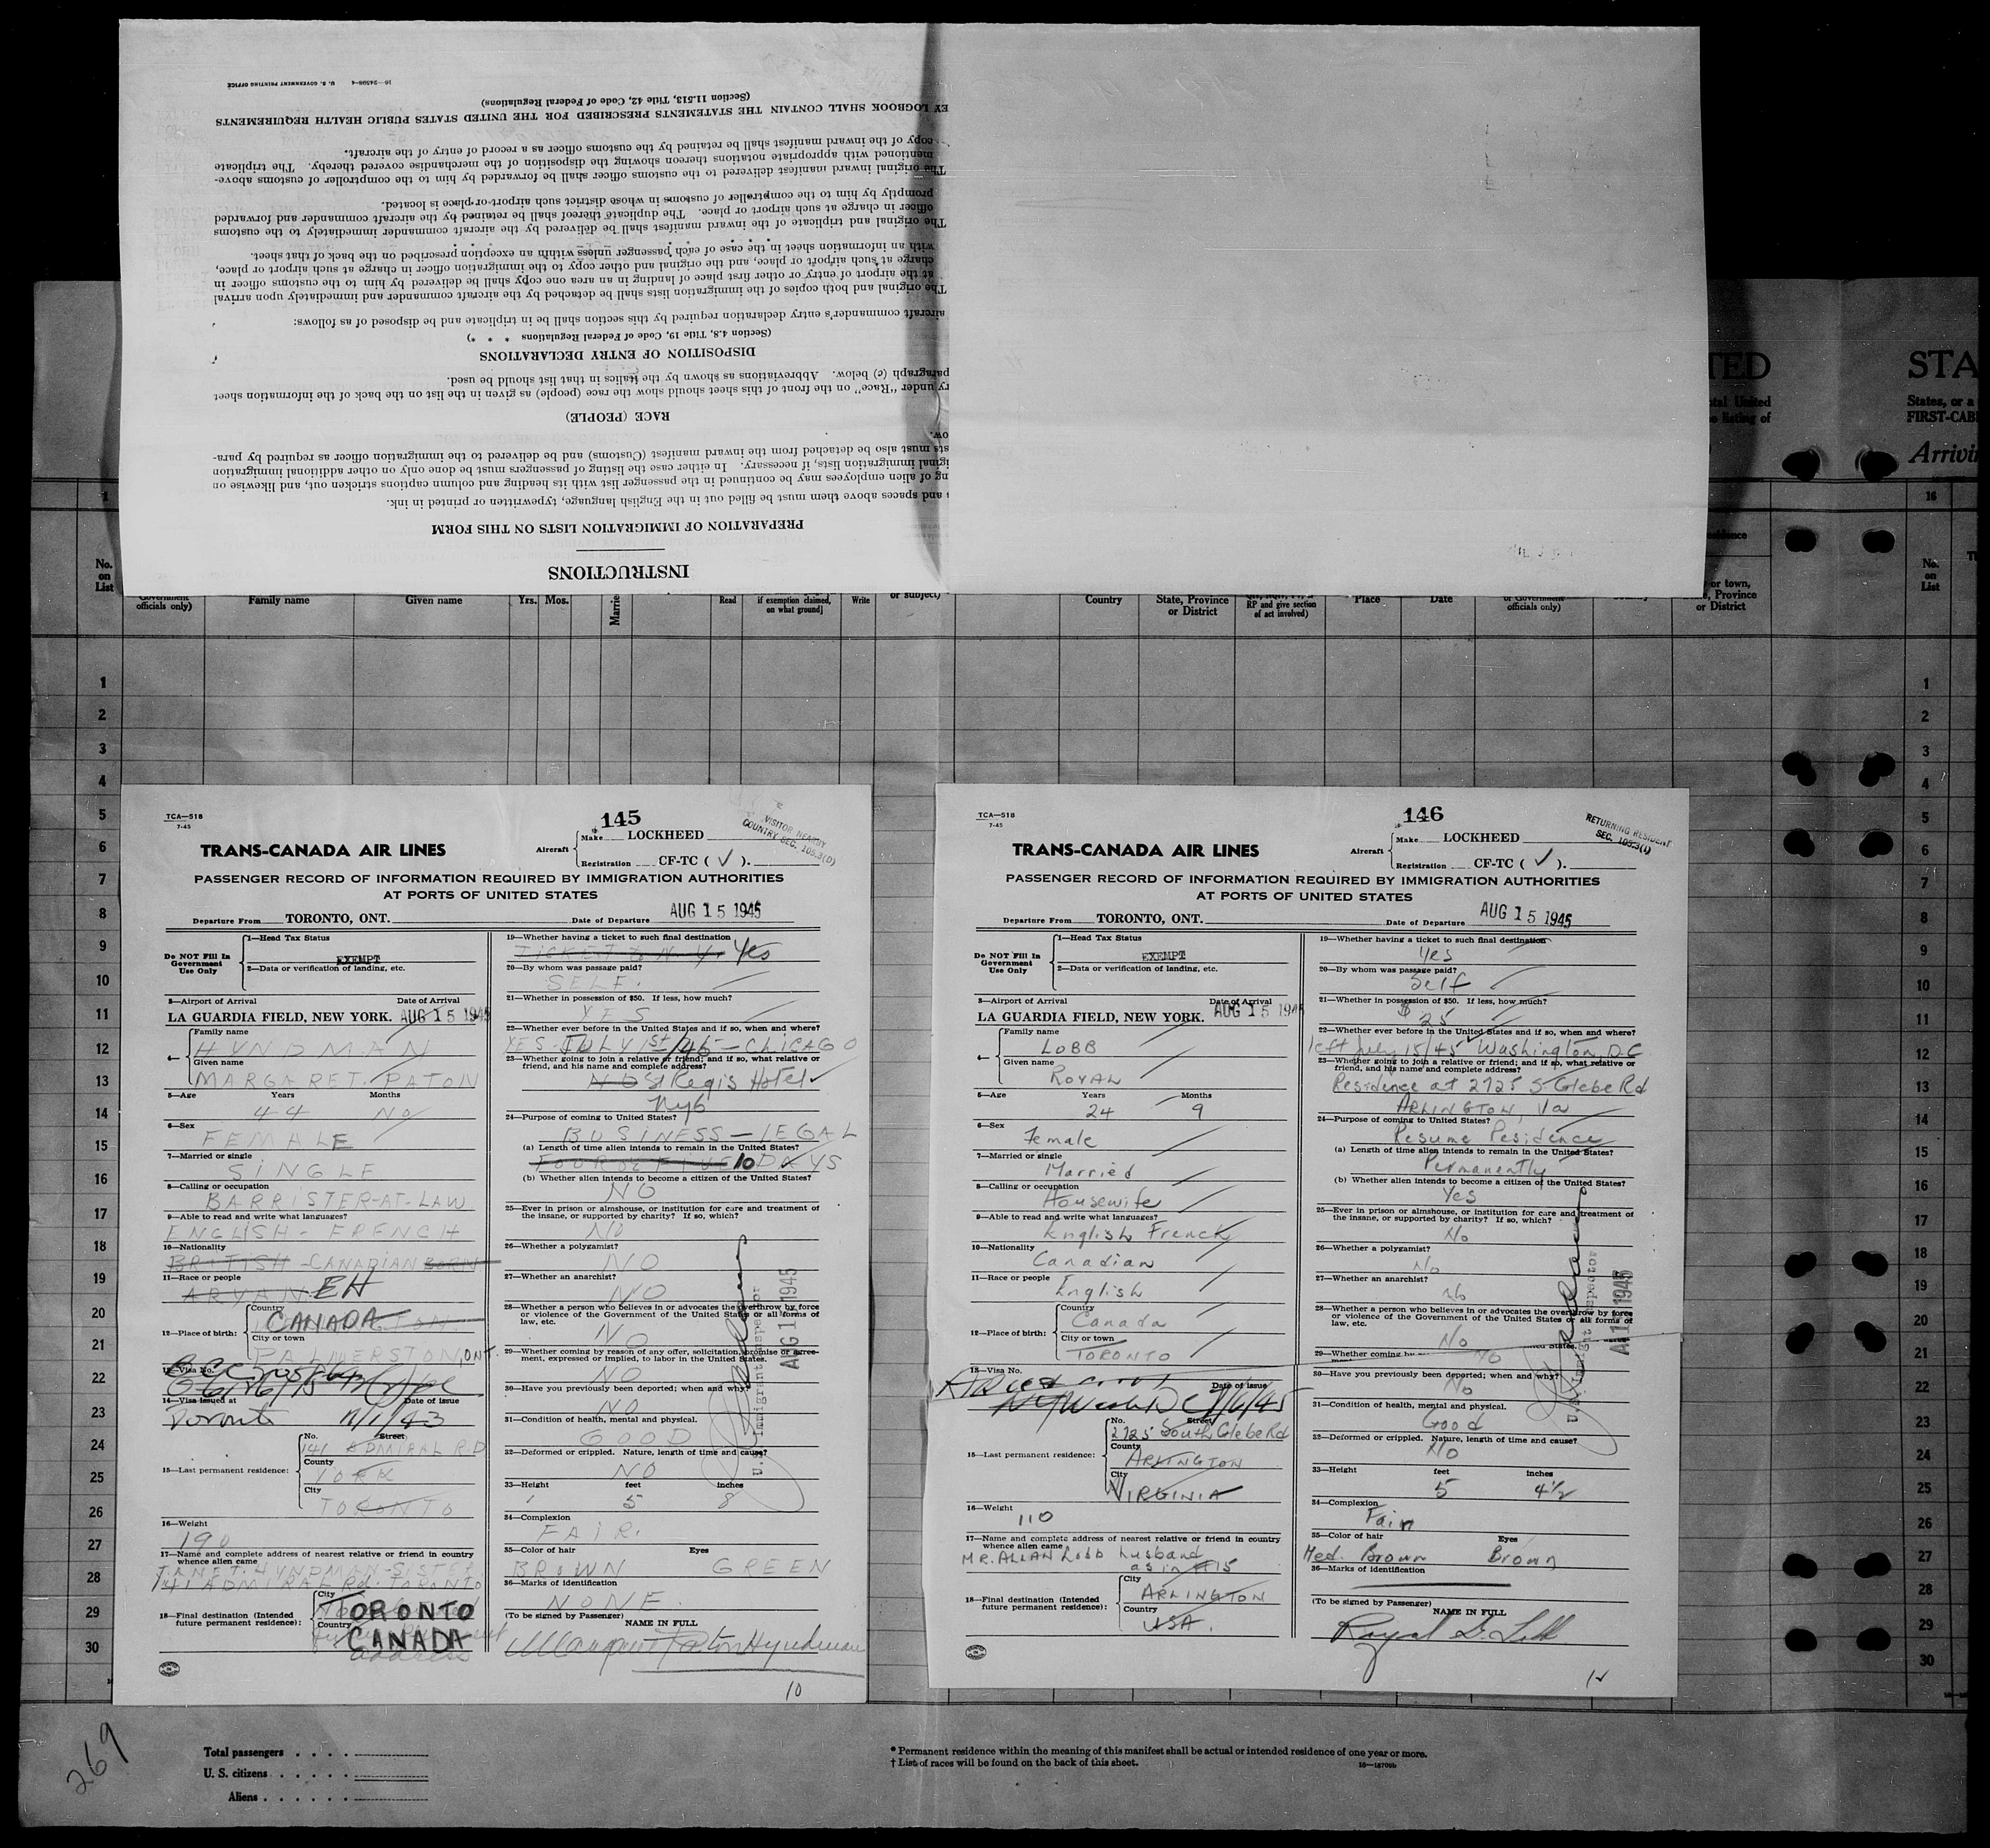 INSTRUCTIONS
PREPARATION OF IMMIGRATION LISTS ON THIS FORM
and spaces above them must be filled out in the English language, typewritten or printed in ink.
ng of alien employees may be continued in the passenger list with its heading and column captions stricken out, and likewise on
iginal immigration lists, if necessary. In either case the listing of passengers must be done only on other additional immigration
sts must also be detached from the inward manifest (Customs) and be delivered to the immigration officer as required by para-
ow.
RACE (PEOPLE)
ry under "Race" on the front of this sheet should show the race (people) as given in the list on the back of the information sheet
paragraph (c) below. Abbreviations as shown by the italics in that list should be used.
DISPOSITION OF ENTRY DECLARATIONS
(Section 4.8, Title 19, Code of Federal Regulations * * *)
aircraft commander's entry declaration required by this section shall be in triplicate and be disposed of as follows:
The original and both copies of the immigration lists shall be detached by the aircraft commander and immediately upon arrival
at the airport of entry or other first place of landing in an area one copy shall be delivered by him to the customs officer in
charge at such airport or place, and the original and other copy to the immigration officer in charge at such airport or place,
with an information sheet in the case of each passenger unless within an exception prescribed on the back of that sheet.
* * * * * * *
The original and triplicate of the inward manifest shall be delivered by the aircraft commander immediately to the customs
officer in charge at such airport or place. The duplicate thereof shall be retained by the aircraft commander and forwarded
promptly by him to the comptroller of customs in whose district such airport or place is located.
The original inward manifest delivered to the customs officer shall be forwarded by him to the comptroller of customs above-
mentioned with appropriate notations thereon showing the disposition of the merchandise covered thereby. The triplicate
copy of the inward manifest shall be retained by the customs officer as a record of entry of the aircraft.
EY LOGBOOK SHALL CONTAIN THE STATEMENTS PRESCRIBED FOR THE UNITED STATES PUBLIC HEALTH REQUIREMENTS
(Section 11.513, Title 42, Code of Federal Regulations)
16—24598-4 U. S. GOVERNMENT PRINTING OFFICE
TED
STA
otal United
o listing of
States, or a
FIRST-CAB
Arrivi
1
16
No.
on
List
officials only)
Family name
Given name
Yrs. Mos.
Marrie
Read
if exemption claimed,
on what ground]
Write
or subject)
Country
State, Province
or District
RP and give section
of act involved)
Place
Date
officials only)
or town,
, Province
or District
No.
on
List
1
2
3
4
5
6
7
8
9
10
11
12
13
14
15
16
17
18
19
20
21
22
23
24
25
26
27
28
29
30
TCA—518
7-45
145
VISITOR NEARBY
COUNTRY SEC. 105.3(D)
TRANS-CANADA AIR LINES
Aircraft
Make LOCKHEED
Registration CF-TC ( ✓ ).
PASSENGER RECORD OF INFORMATION REQUIRED BY IMMIGRATION AUTHORITIES
AT PORTS OF UNITED STATES
Departure From TORONTO, ONT. Date of Departure AUG 15 1945
Do NOT Fill In
Government
Use Only
1—Head Tax Status
EXEMPT
2—Data or verification of landing, etc.
3—Airport of Arrival Date of Arrival
LA GUARDIA FIELD, NEW YORK. AUG 15 1945
4—
Family name
HYNDMAN
Given name
MARGARET. PATON
5—Age Years Months
44 No
6—Sex
FEMALE
7—Married or single
SINGLE
8—Calling or occupation
BARRISTER-AT-LAW
9—Able to read and write what languages?
ENGLISH - FRENCH
10—Nationality
BRITISH - CANADIAN BORN
11—Race or people
ARYAN EH
12—Place of birth:
Country
CANADA
City or town
PALMERSTON, ONT.
13—Visa No.
14—Visa issued at Date of issue
Toronto 11/1/43
15—Last permanent residence:
No. Street
141 ADMIRAL RD
County
YORK
City
TORONTO
16—Weight
190
17—Name and complete address of nearest relative or friend in country
whence alien came
JANET. HYNDMAN - SISTER
141 ADMIRAL RD. TORONTO
18—Final destination (Intended
future permanent residence):
City
TORONTO
Country
CANADA
address
19—Whether having a ticket to such final destination
TICKET to N.Y. Yes
20—By whom was passage paid?
SELF.
21—Whether in possession of $50. If less, how much?
YES
22—Whether ever before in the United States and if so, when and where?
YES - JULY 1st/45 - CHICAGO
23—Whether going to join a relative or friend; and if so, what relative or
friend, and his name and complete address?
NO St Regis Hotel
NYC
24—Purpose of coming to United States?
BUSINESS - LEGAL
(a) Length of time alien intends to remain in the United States?
FOUR OR FIVE 10 DAYS
(b) Whether alien intends to become a citizen of the United States?
NO
25—Ever in prison or almshouse, or institution for care and treatment of
the insane, or supported by charity? If so, which?
NO
26—Whether a polygamist?
NO
27—Whether an anarchist?
NO
28—Whether a person who believes in or advocates the overthrow by force
or violence of the Government of the United States or all forms of
law, etc.
NO
29—Whether coming by reason of any offer, solicitation, promise or agree-
ment, expressed or implied, to labor in the United States.
NO
30—Have you previously been deported; when and why?
NO
31—Condition of health, mental and physical.
GOOD
32—Deformed or crippled. Nature, length of time and cause?
NO
33—Height feet inches
5 8
34—Complexion
FAIR.
35—Color of hair Eyes
BROWN GREEN
36—Marks of identification
NONE.
(To be signed by Passenger) NAME IN FULL
Margaret Paton Hyndman
U.S. Immigrant Inspector
AUG 15 1945
10
TCA—518
7-45
146
RETURNING RESIDENT
SEC. 105.3(1)
TRANS-CANADA AIR LINES
Aircraft
Make LOCKHEED
Registration CF-TC ( ✓ ).
PASSENGER RECORD OF INFORMATION REQUIRED BY IMMIGRATION AUTHORITIES
AT PORTS OF UNITED STATES
Departure From TORONTO, ONT. Date of Departure AUG 15 1945
Do NOT Fill In
Government
Use Only
1—Head Tax Status
EXEMPT
2—Data or verification of landing, etc.
3—Airport of Arrival Date of Arrival
LA GUARDIA FIELD, NEW YORK. AUG 15 1945
4—
Family name
LOBB
Given name
ROYAL
5—Age Years Months
24 9
6—Sex
Female
7—Married or single
Married
8—Calling or occupation
Housewife
9—Able to read and write what languages?
English French
10—Nationality
Canadian
11—Race or people
English
12—Place of birth:
Country
Canada
City or town
TORONTO
13—Visa No.
Date of issue
Wash DC 7/6/45
15—Last permanent residence:
No. Street
2725 South Glebe Rd
County
ARLINGTON
City
VIRGINIA
16—Weight
110
17—Name and complete address of nearest relative or friend in country
whence alien came
MR. ALLAN LOBB husband
as in #15
18—Final destination (Intended
future permanent residence):
City
ARLINGTON
Country
USA.
19—Whether having a ticket to such final destination
Yes
20—By whom was passage paid?
Self
21—Whether in possession of $50. If less, how much?
$ 25
22—Whether ever before in the United States and if so, when and where?
left July 15/45 Washington, D.C
23—Whether going to join a relative or friend; and if so, what relative or
friend, and his name and complete address?
Residence at 2725 S. Glebe Rd
ARLINGTON, Va
24—Purpose of coming to United States?
Resume Residence
(a) Length of time alien intends to remain in the United States?
Permanently
(b) Whether alien intends to become a citizen of the United States?
Yes
25—Ever in prison or almshouse, or institution for care and treatment of
the insane, or supported by charity? If so, which?
No
26—Whether a polygamist?
No
27—Whether an anarchist?
No
28—Whether a person who believes in or advocates the overthrow by force
or violence of the Government of the United States or all forms of
law, etc.
No
29—Whether coming by
No
30—Have you previously been deported; when and why?
No
31—Condition of health, mental and physical.
Good
32—Deformed or crippled. Nature, length of time and cause?
No
33—Height feet inches
5 4½
34—Complexion
Fair
35—Color of hair Eyes
Med. Brown Brown
36—Marks of identification
(To be signed by Passenger) NAME IN FULL
Royal D. Lobb
12
1
2
3
4
5
6
7
8
9
10
11
12
13
14
15
16
17
18
19
20
21
22
23
24
25
26
27
28
29
30
269
Total passengers . . . .
U. S. citizens . . . . .
Aliens . . . . . .
* Permanent residence within the meaning of this manifest shall be actual or intended residence of one year or more.
† List of races will be found on the back of this sheet.
16—18709b